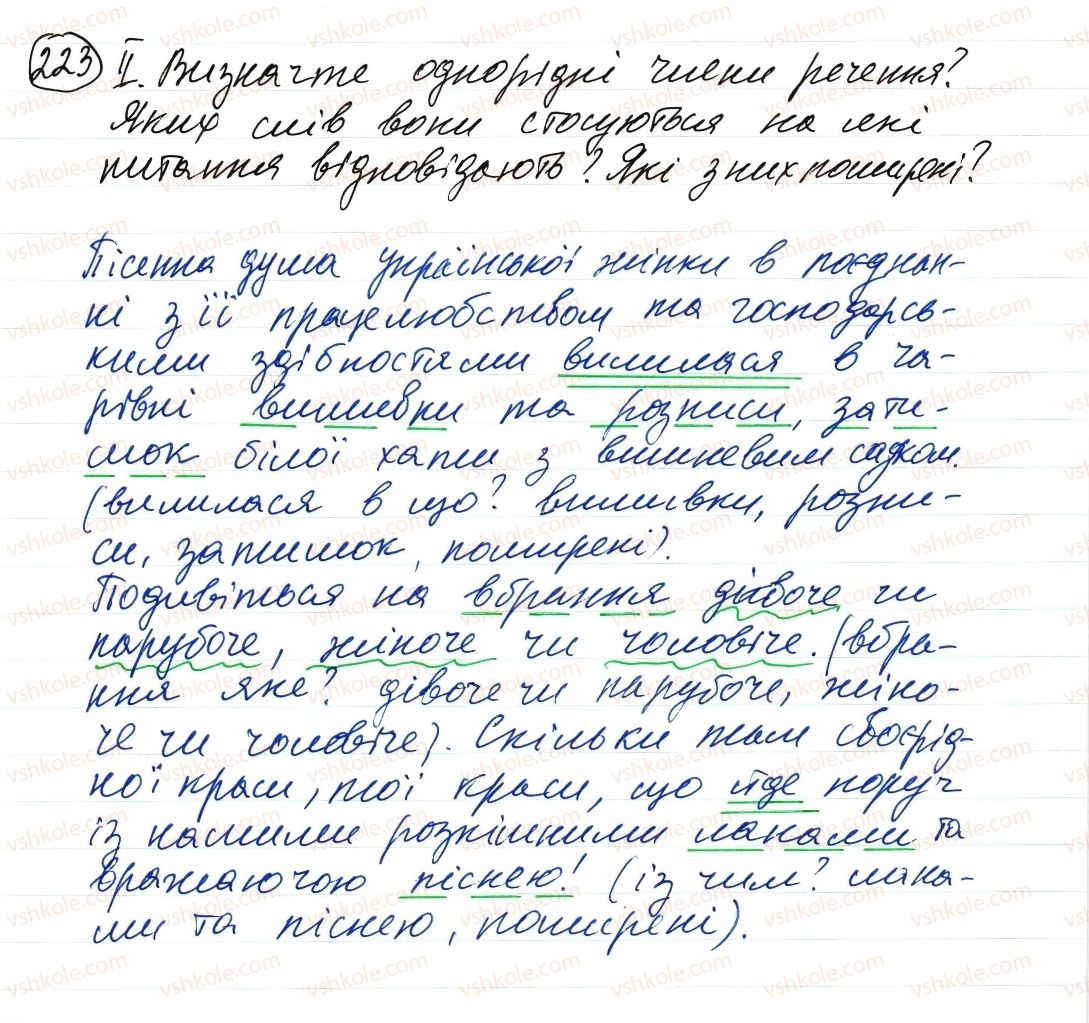 223 II. Визначте однорідні члени речення?
Яких слів вони стосуються на які
питання відповідають? Які з них поширені?
Пісенна дума української жінки в поєднан-
ні з її працелюбством та господарсь-
кими здібностями вилилася в ча-
рівні вишивки та розписи, зати-
шок білої хати з вишневим садком.
(вилилася в що? вишивки, розпи-
си, затишок, поширені).
Подивіться на вбрання дівоче чи
парубоче, жіноче чи чоловіче. (вбра-
ння яке? дівоче чи парубоче, жіно-
че чи чоловіче). Скільки там своєрід-
ної краси, тої краси, що йде поруч
із нашими розкішними ланами та
вражаючою піснею! (із чим? лана-
ми та піснею, поширені).